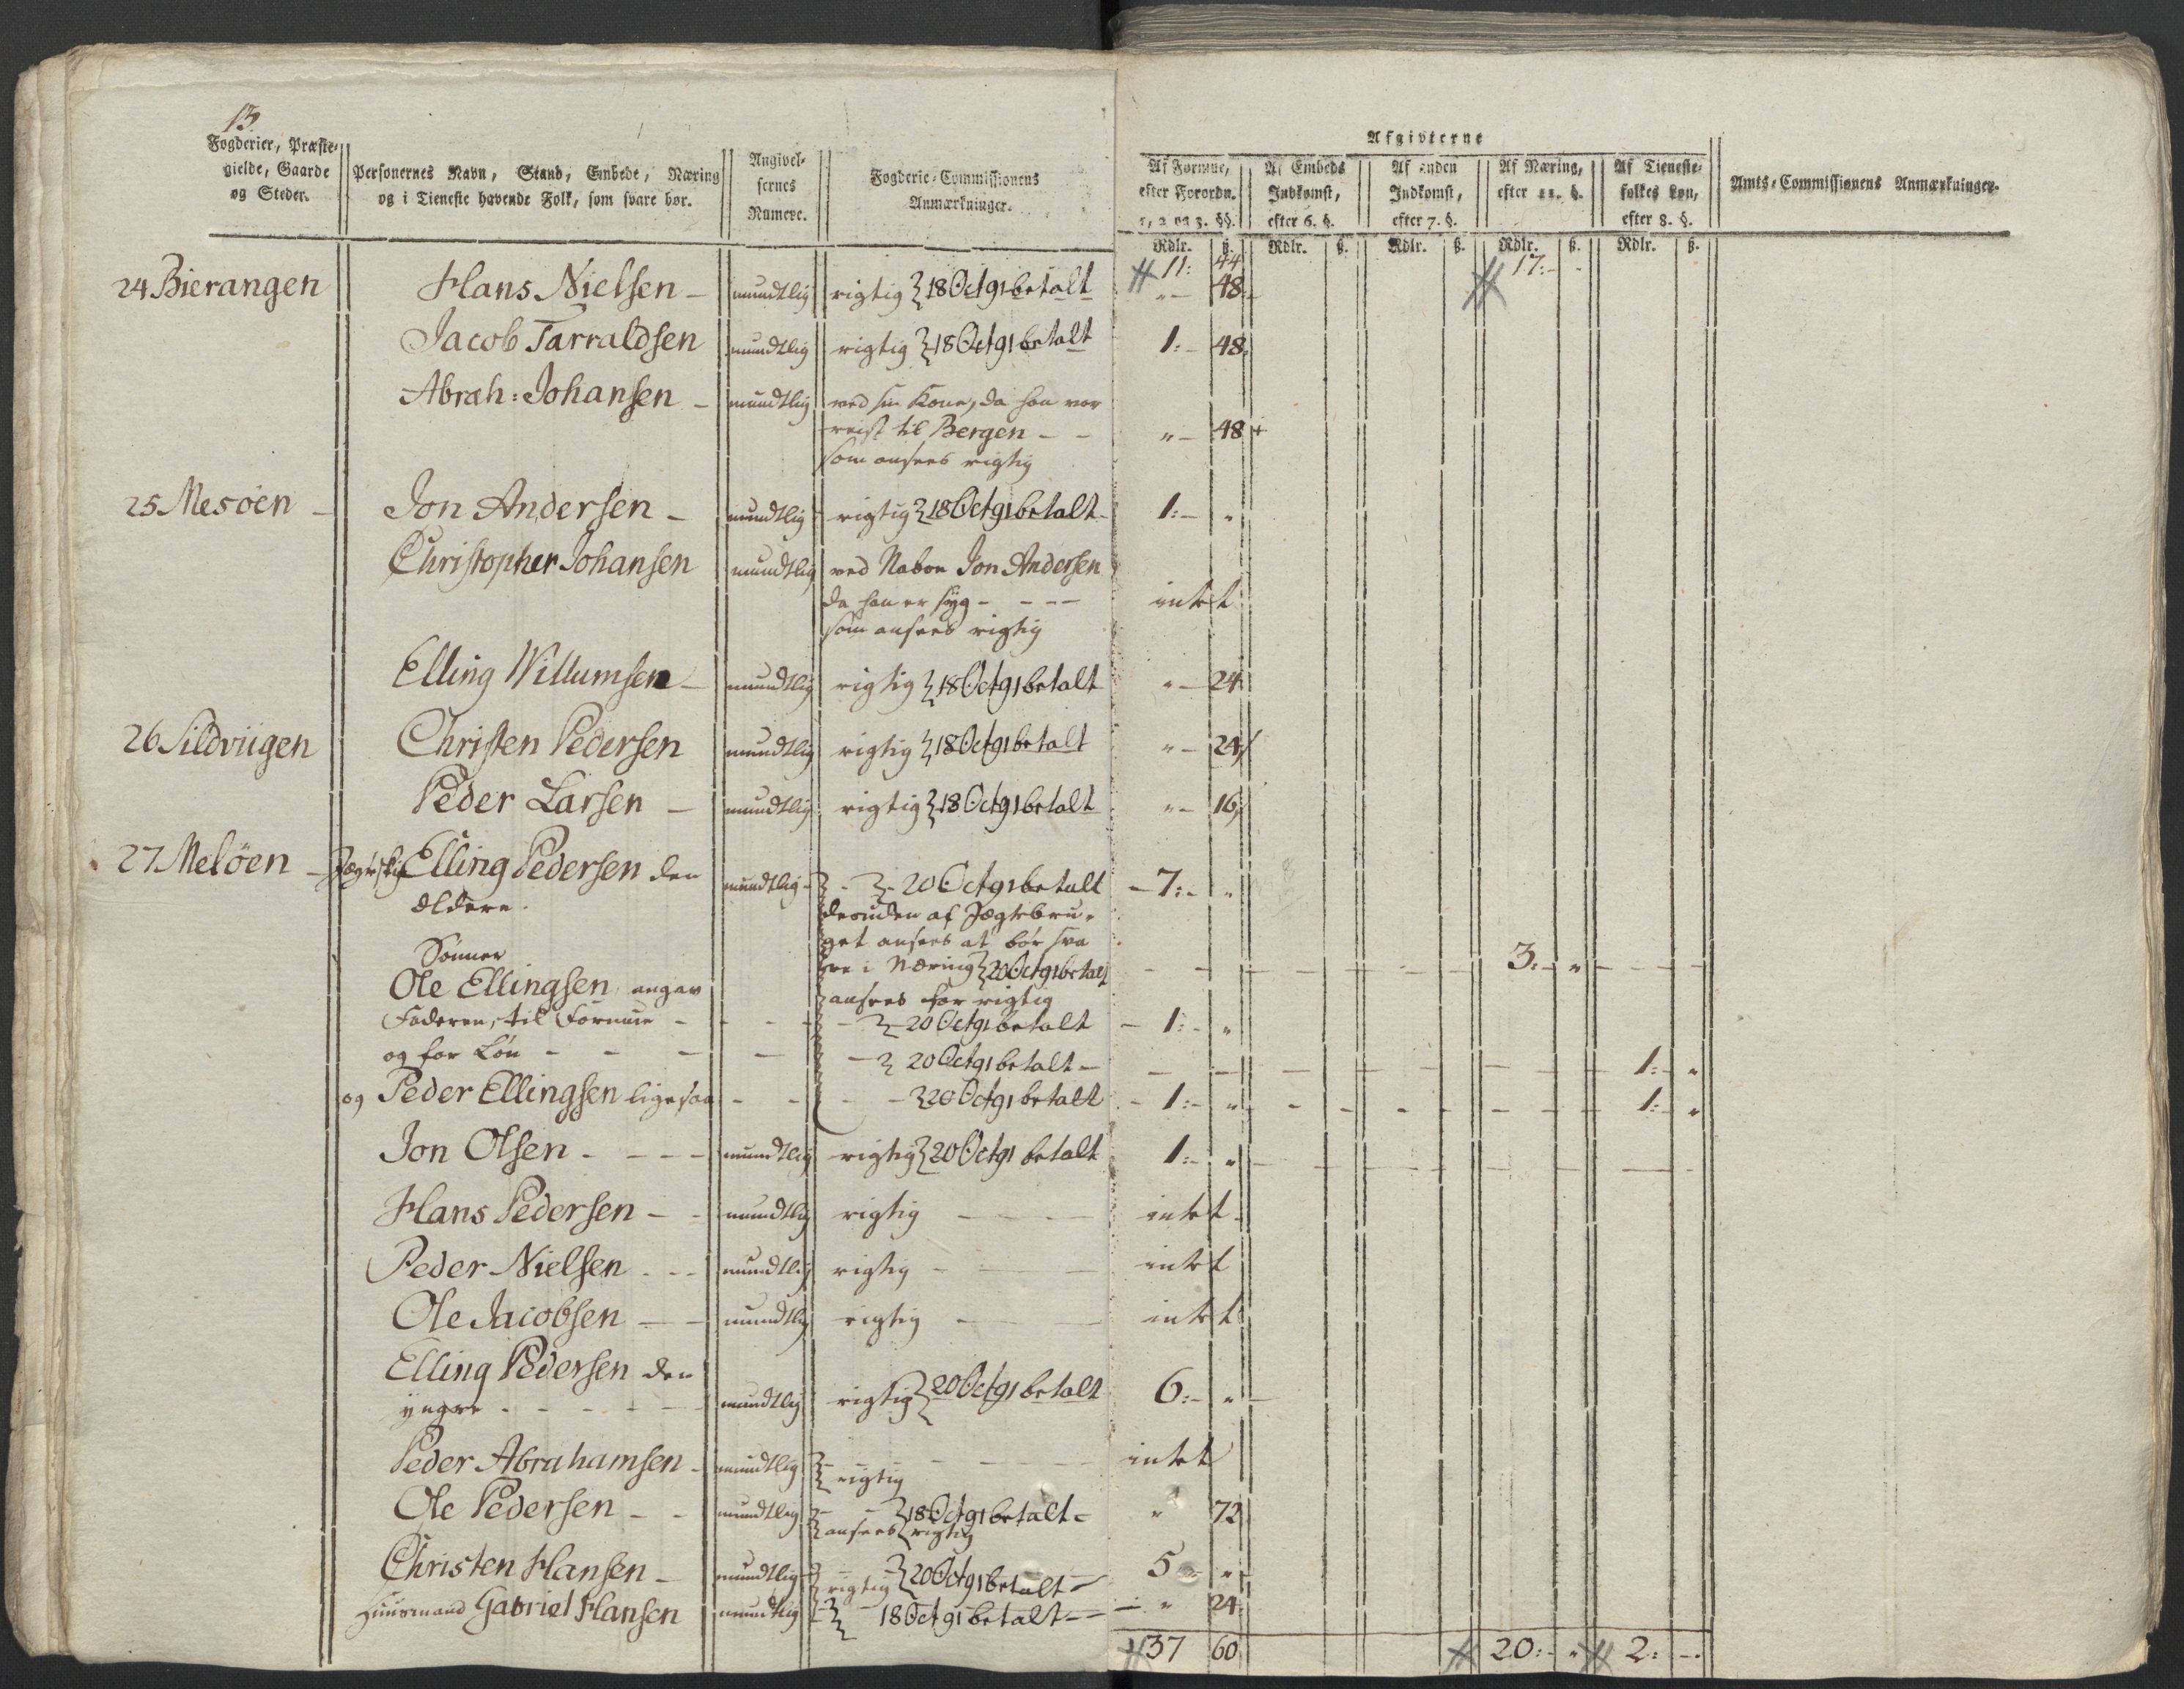 13
Fogderier, Præste-
gielde, Gaarde
og Steder.
Personernes Navn, Stand, Embede, Næring
og i Tieneste havende Folk, som svare bør.
Angivel-
sernes
Numere.
Fogderie-Commissionens
Anmærkninger.
Afgivterne
Af Formue,
efter Forordn.
1, 2 og 3. §§.
Af Embeds
Indkomst,
efter 6. §.
Af anden
Indkomst,
efter 7. §.
Af Næring,
efter 11. §.
Af Tieneste-
folkes Løn,
efter 8. §.
Amts-Commissionens Anmærkninger.
Rdlr. ß. Rdlr. ß. Rdlr. ß. Rdlr. ß. Rdlr. ß.
11: 44 17:- -
24 Bierangen Hans Nielsen - mundtlig rigtig } 18 Oct 91 betalt " - 48
Jacob Tarraldsen mundtlig rigtig } 18 Oct 91 betalt 1:- 48
Abrah: Johansen - mundtlig ved sin Kone, da han var
reist til Bergen - - " - 48 +
som ansees rigtig
25 Mesöen - Jon Andersen - mundtlig rigtig } 18 Oct 91 betalt 1:- "
Christopher Johansen mundtlig ved Naboe Jon Andersen
da han er syg - - - - intet
som ansees rigtig
Elling Willumsen - mundtlig rigtig } 18 Oct 91 betalt " - 24
26 Sildviigen Christen Pedersen mundtlig rigtig } 18 Oct 91 betalt " - 24
Peder Larsen - mundtlig rigtig } 18 Oct 91 betalt " - 16
27 Melöen - Elling Pedersen den mundtlig - } - 20 Oct 91 betalt - 7:- "
ældere.
desuden af Jægtebru-
get ansees at bör sva
Sönner
re i Næring } 20 Oct 91 betalt - - - - - - 3:- " - - - -
Ole Ellingsen angav ansees for rigtig
Faderen, til Formue - - - - } 20 Oct 91 betalt - 1:- "
og for Lön - - - - - } 20 Oct 91 betalt - - - - - - - - - 1:- "
og Peder Ellingsen ligesaa - - - - } 20 Oct 91 betalt - 1:- " - - - - - - 1:- "
Jon Olsen - - - - mundtlig rigtig } 20 Oct 91 betalt 1:- " - - - - - - - -
Hans Pedersen - - mundtlig rigtig - - - - intet -
Peder Nielsen - - - mundtlig rigtig - - - intet
Ole Jacobsen - - mundtlig rigtig - - - intet
Elling Pedersen den
yngre - - - - - mundtlig rigtig } 20 Oct 91 betalt 6:- " -
Peder Abrahamsen - mundtlig } rigtig - - - - intet
Ole Pedersen - - mundtlig } - - } 18 Oct 91 betalt - " 72
ansees rigtig
Christen Hansen - mundtlig - } rigtig } 20 Oct 91 betalt - 5 - "
Huusmand Gabriel Hansen mundtlig } 18 Oct 91 betalt - - - " 24
37 60 20:- " 2:- -